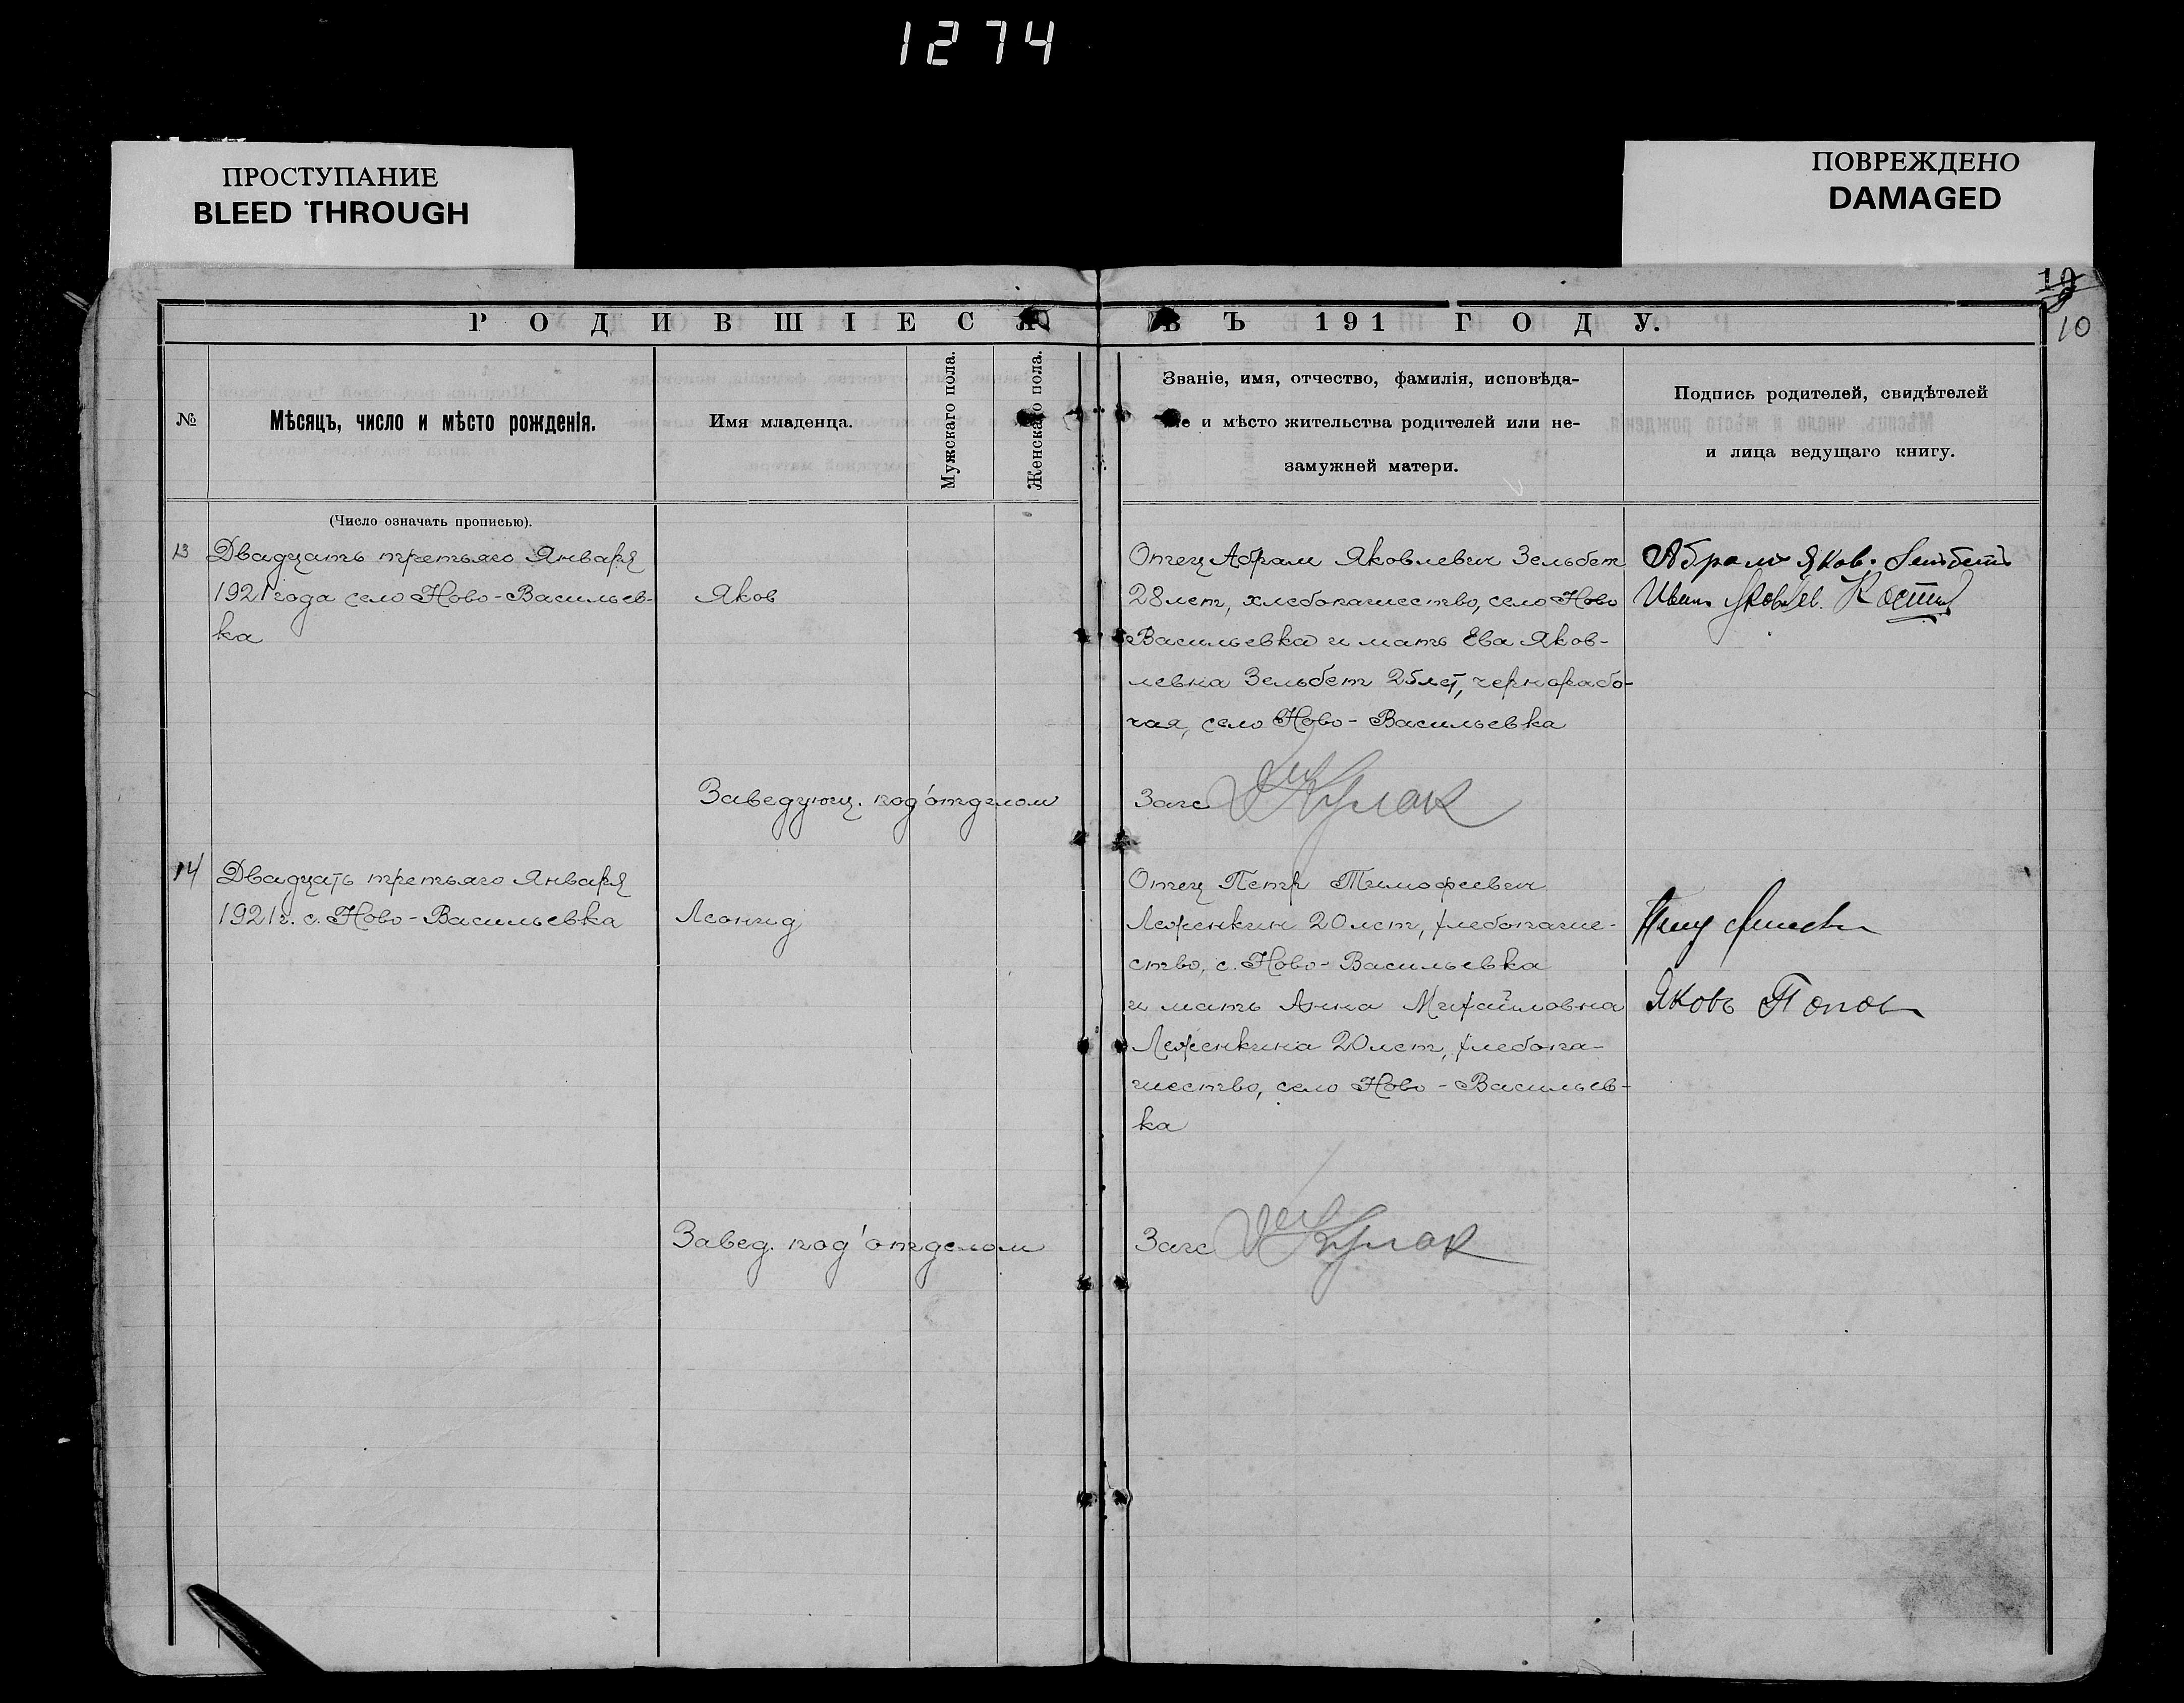 1274
ПРОСТУПАНИЕ
BLEED THROUGH
ПОВРЕЖДЕНО
DAMAGED
10
10
РОДИВШІЕСЯ ВЪ 191 ГОДУ.
№
Мѣсяцъ, число и мѣсто рожденія.
Имя младенца.
Мужскаго пола.
Женскаго пола.
Званіе, имя, отчество, фамилія, исповѣда-
ніе и мѣсто жительства родителей или не-
замужней матери.
Подпись родителей, свидѣтелей
и лица ведущаго книгу.
(Число означать прописью).
13
Двадцать третьяго Января
1921 года село Ново-Васильев-
ка
Яков
Отец Абрам Яковлевич Зельбет
28 лет, хлебопашество, село Ново
Васильевка и мать Ева Яков-
левна Зельбет 25 лет, чернорабо-
чая, село Ново-Васильевка
Абрамъ Яков.
Иванъ Яковлев.
Заведующ. под'отделом
Загс Кулак
14
Двадцать третьяго Января
1921 г. с. Ново-Васильевка
Леонид
Отец Петр Тимофеевич
Леженкин 20 лет, хлебопаше-
ство, с. Ново-Васильевка
и мать Анна Михайловна
Леженкина 20 лет, хлебопа-
шество, село Ново-Васильев-
ка
Яковъ Попов
Завед. под'отделом
Загс Кулак